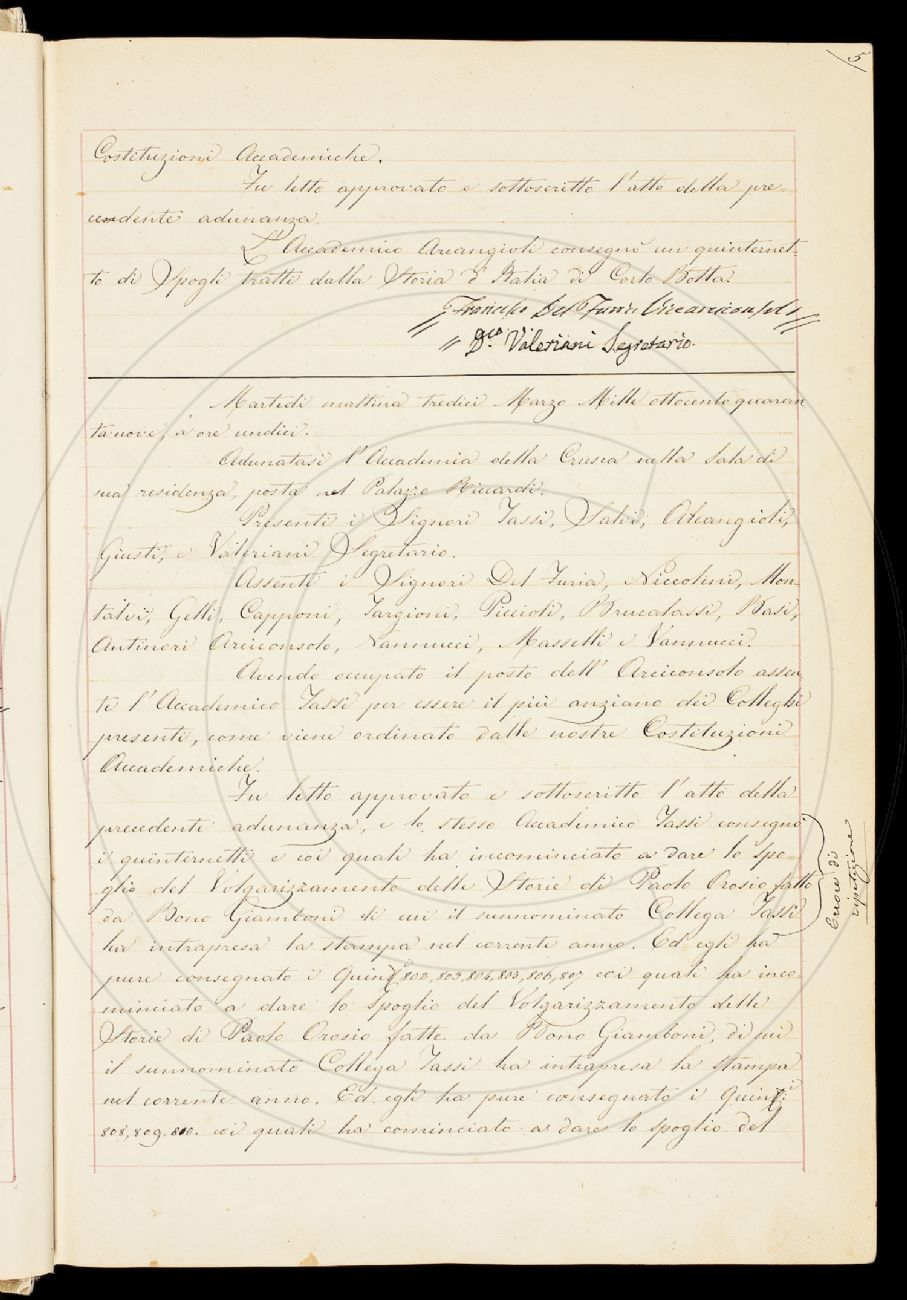 5
Costituzioni Accademiche.
Fu letto approvato e sottoscritto l'atto della pre-
cedente adunanza.
L'Accademico Arcangioli consegnò un quinternet-
to di Spogli tratti dalla Storia d'Italia di Carlo Botta.
Francesco Del Furia Vicearciconsolo
D.co Valeriani Segretario.
Martedì mattina tredici Marzo Mille ottocento quaran
tanove, a ore undici.
Adunatasi l'Accademia della Crusca nella Sala di
sua residenza, posta nel Palazzo Riccardi.
Presenti i Signori Tassi, Salvi, Arcangioli,
Giusti, e Valeriani Segretario.
Assenti i Signori Del Furia, Niccolini, Mon-
talvi, Gelli, Capponi, Targioni, Piccioli, Brucalassi, Basi,
Antinori Arciconsolo, Nannucci, Masselli e Vannucci.
Avendo occupato il posto dell'Arciconsolo assen
te l'Accademico Tassi per essere il più anziano dei Colleghi
presenti, come viene ordinato dalle nostre Costituzioni
Accademiche.
Fu letto approvato e sottoscritto l'atto della
precedente adunanza, e lo stesso Accademico Tassi consegnò
i quinternetti e coi quali ha incominciato a dare lo spo-
glio del Volgarizzamento delle Storie di Paolo Orosio fatto
da Bono Giamboni di cui il sunnominato Collega Tassi
ha intrapresa la stampa nel corrente anno. Ed egli ha
pure consegnato i Quint.i 802, 803, 804, 805, 806, 807 coi quali ha inco-
minciato a dare lo Spoglio del Volgarizzamento delle
Storie di Paolo Orosio fatte da Bono Giamboni, di cui
il sunnominato Collega Tassi ha intrapresa la stampa
nel corrente anno. Ed egli ha pure consegnato i Quint.i
808, 809, 810. coi quali ha cominciato a dare lo spoglio del
Errore di
ripetizione